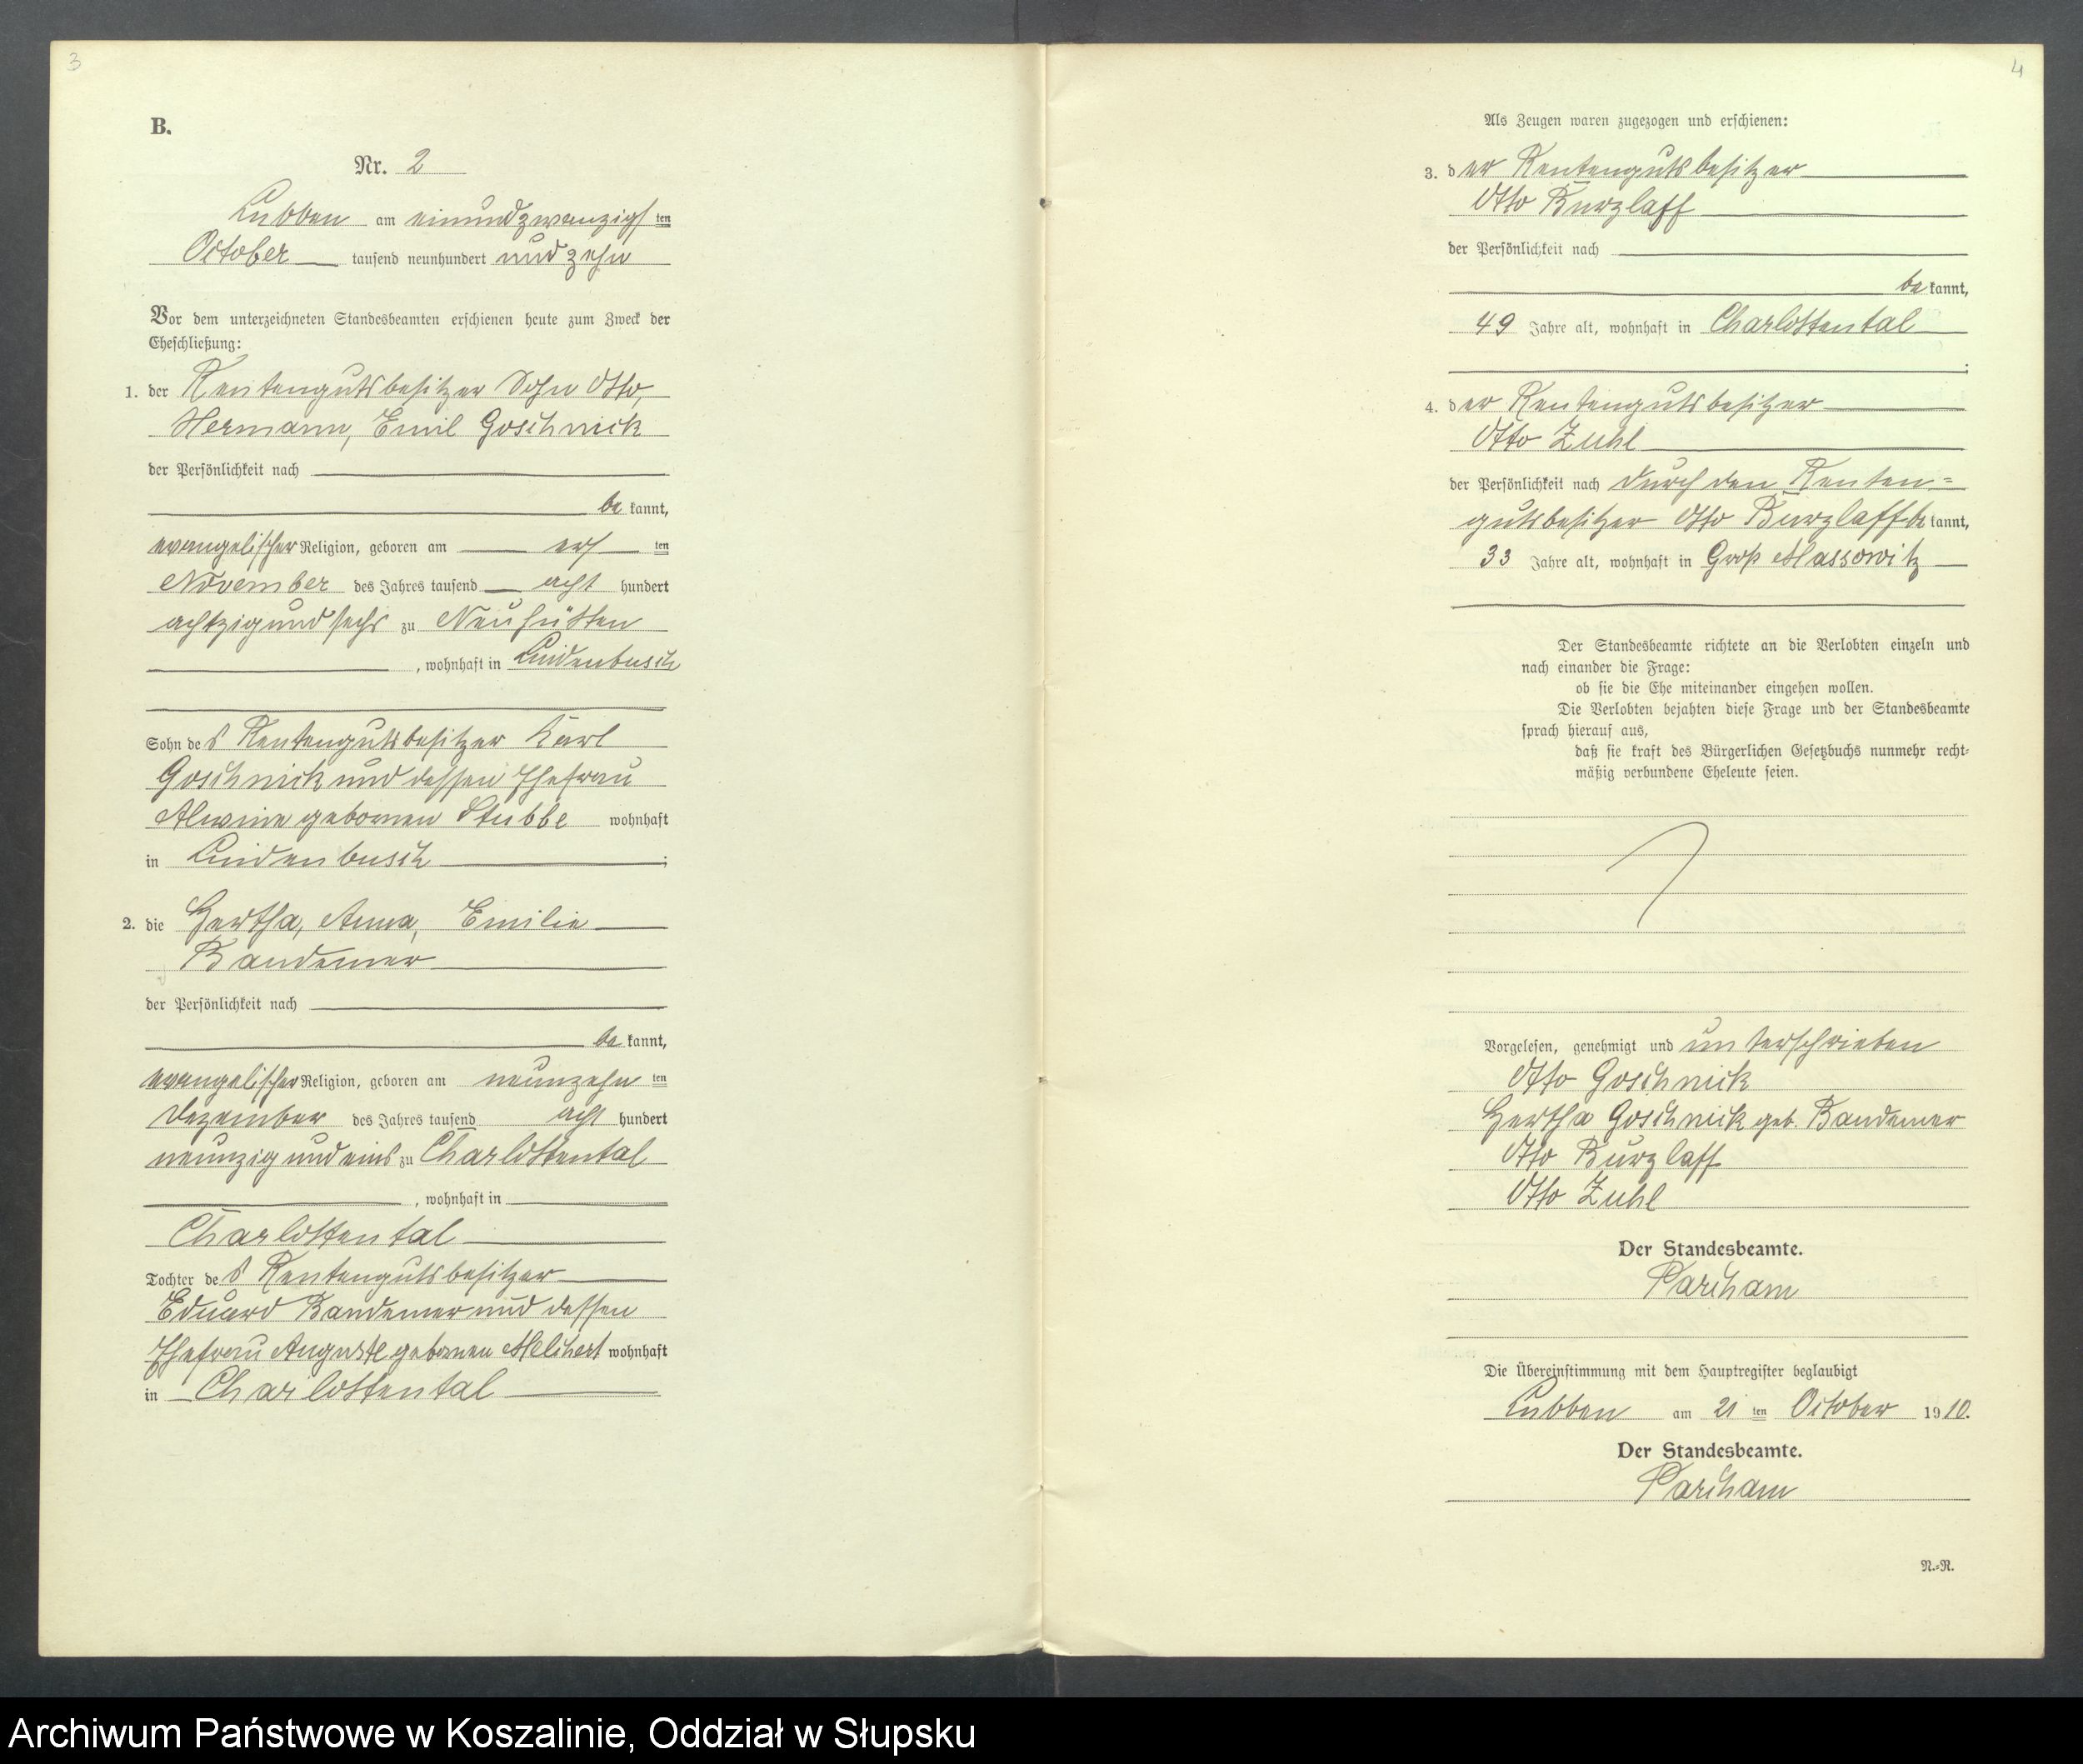 3
B.
Nr. 2
Lubben am einundzwanzigsten
October tausend neunhundert und zehn
Vor dem unterzeichneten Standesbeamten erschienen heute zum Zweck der
Eheschließung:
1. der Rentengutsbesitzer Sohn Otto,
Hermann, Emil Goschnick
der Persönlichkeit nach
be kannt,
evangelischer Religion, geboren am ersten
November des Jahres tausend acht hundert
achtzig und sechs zu Neuhütten
, wohnhaft in Lindenbusch
Sohn des Rentengutsbesitzer Karl
Goschnick und dessen Ehefrau
Alwine geborenen Stubbe wohnhaft
in Lindenbusch ;
2. die Hertha, Anna, Emilie
Bandemer
der Persönlichkeit nach
be kannt,
evangelischer Religion, geboren am neunzehn ten
Dezember des Jahres tausend acht hundert
neunzig und eins zu Charlottental
, wohnhaft in
Charlottental
Tochter des Rentengutsbesitzer
Eduard Bandemer und dessen
Ehefrau Auguste geborenen Melchert wohnhaft
in Charlottental
4
Als Zeugen waren zugezogen und erschienen:
3. der Rentengutsbesitzer
Otto Burzlaff
der Persönlichkeit nach
be kannt,
49 Jahre alt, wohnhaft in Charlottental
;
4. der Rentengutsbesitzer
Otto Zuhl
der Persönlichkeit nach durch den Renten=
gutsbesitzer Otto Burzlaff be kannt,
33 Jahre alt, wohnhaft in Groß Massowitz
Der Standesbeamte richtete an die Verlobten einzeln und
nach einander die Frage:
ob sie die Ehe miteinander eingehen wollen.
Die Verlobten bejahten diese Frage und der Standesbeamte
sprach hierauf aus,
daß sie kraft des Bürgerlichen Gesetzbuchs nunmehr recht-
mäßig verbundene Eheleute seien.
Vorgelesen, genehmigt und unterschrieben
Otto Goschnick
Hertha Goschnick geb. Bandemer
Otto Burzlaff
Otto Zuhl
Der Standesbeamte.
Parcham
Die Übereinstimmung mit dem Hauptregister beglaubigt
Lubben am 21 ten October 1910.
Der Standesbeamte.
Parcham
N.-R.
Archiwum Państwowe w Koszalinie, Oddział w Słupsku